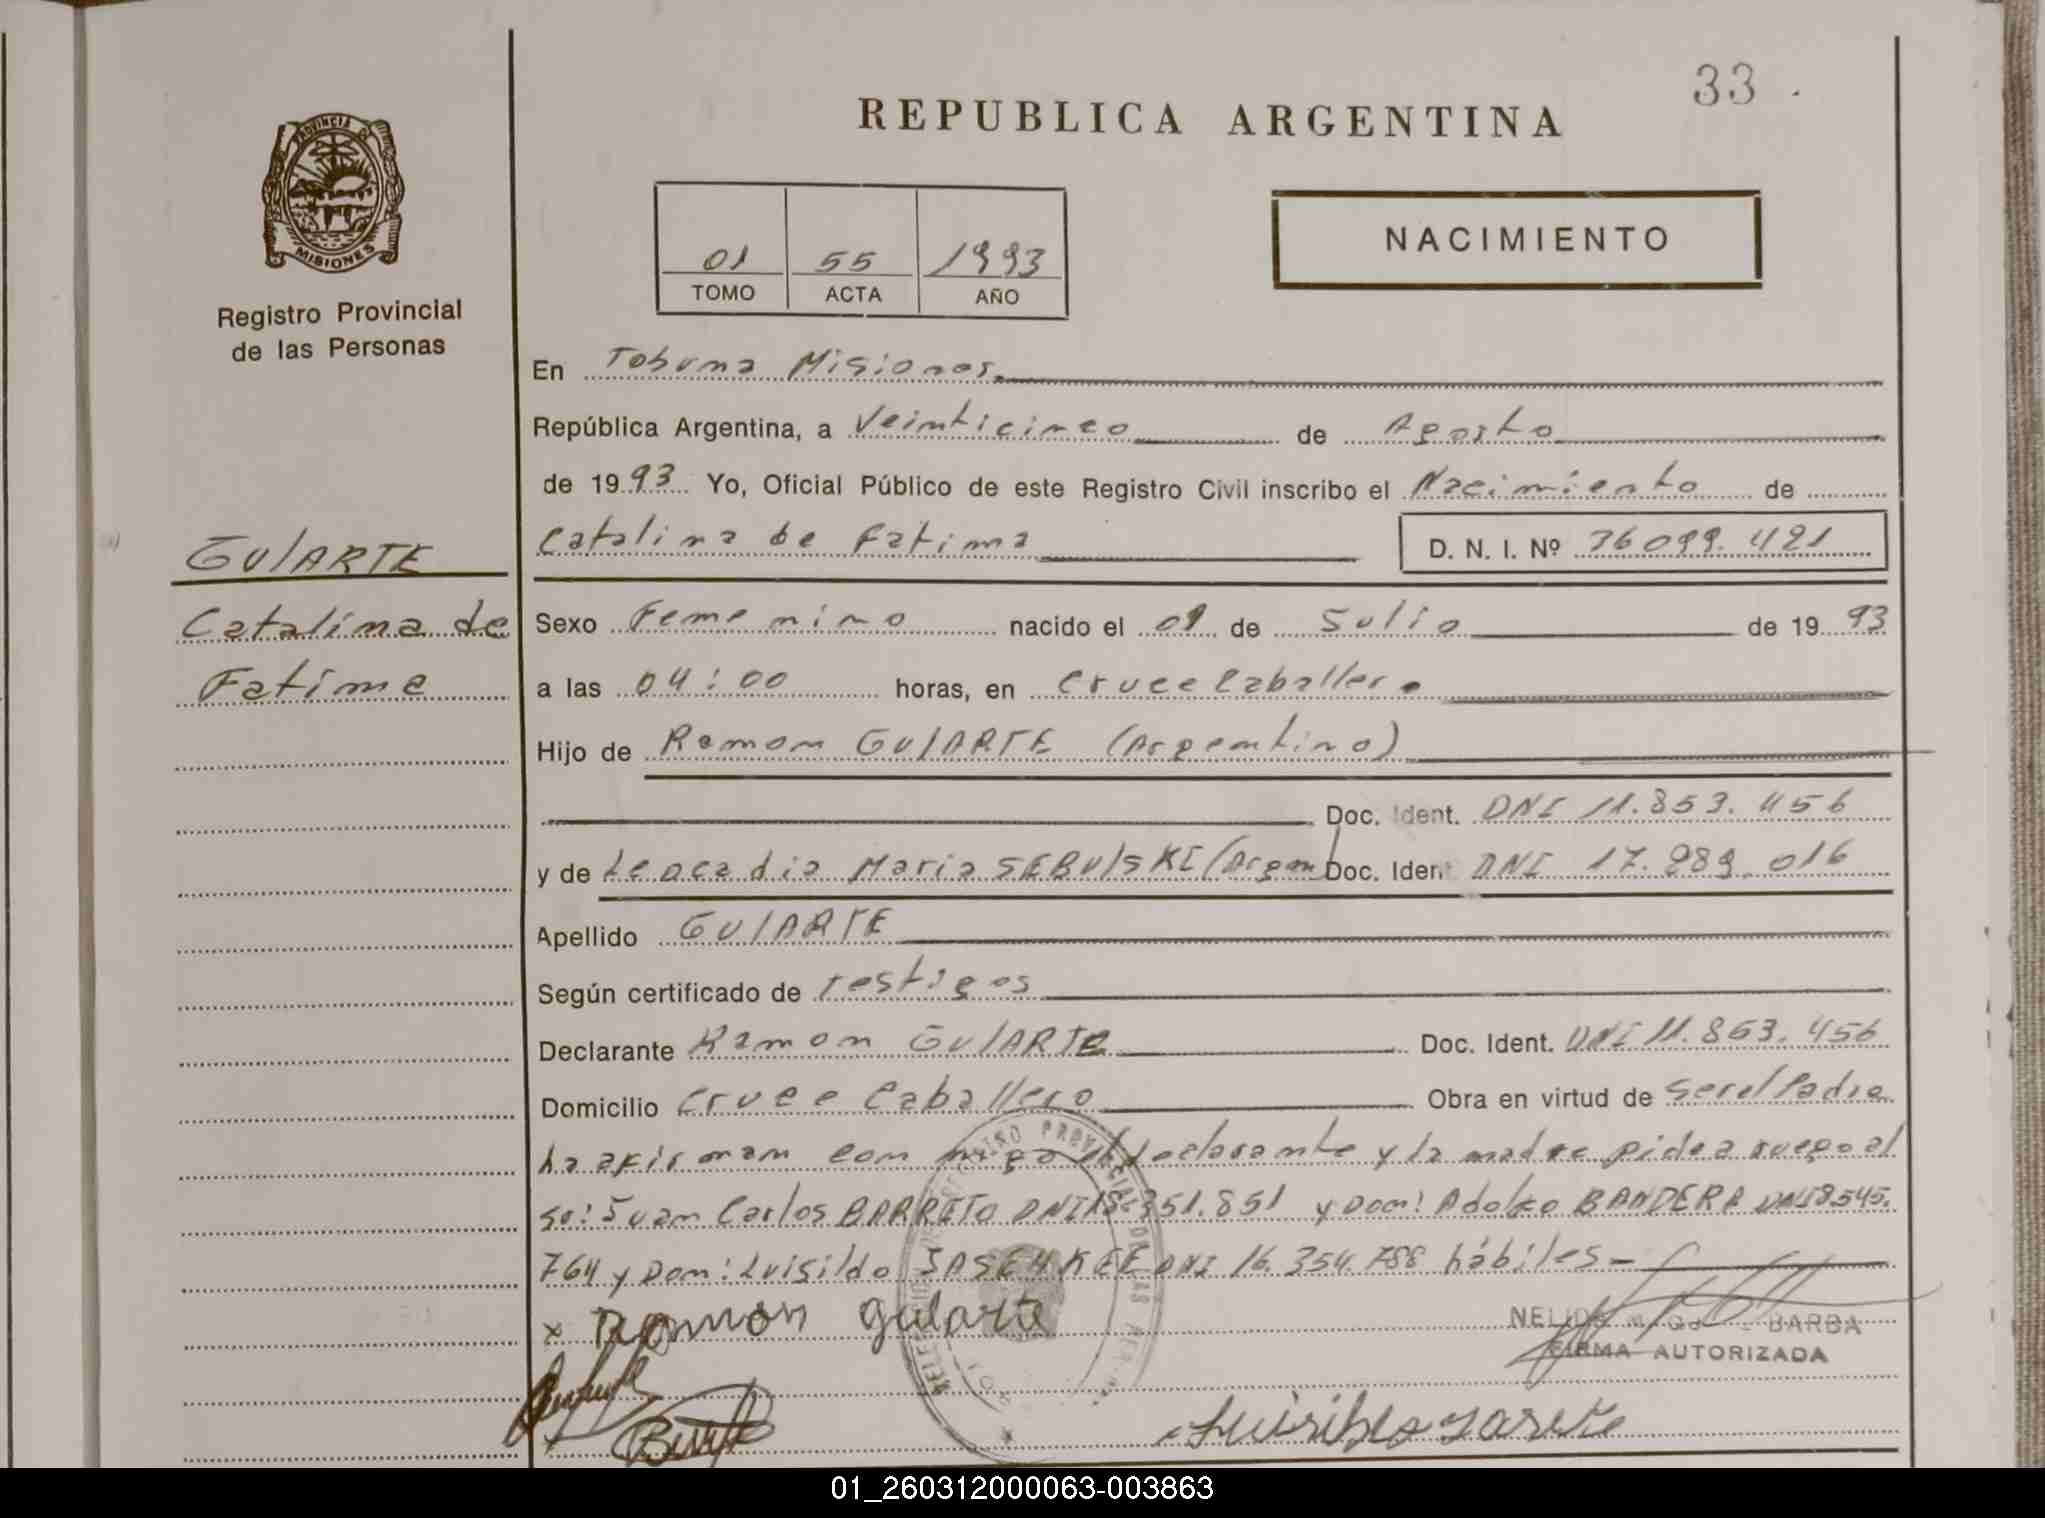 33
REPUBLICA ARGENTINA
PROVINCIA DE
MISIONES
Registro Provincial
de las Personas
01 55 1993
TOMO ACTA AÑO
NACIMIENTO
En Tobuna Misiones
República Argentina, a Veinticinco de Agosto
de 1993 Yo, Oficial Público de este Registro Civil inscribo el Nacimiento de
Catalina de Fatima D. N. I. Nº 36099.421
GUlARTE
Catalina de
Fatima
Sexo Femenino nacido el 01 de Julio de 1993
a las 04:00 horas, en Cruce Caballero
Hijo de Ramon GUlARTE (Argentino)
Doc. Ident. DNI 11.853.456
y de Leocadia Maria SEBUlSKI (Argen) Doc. Ident DNI 17.989.016
Apellido GUlARTE
Según certificado de Testigos
Declarante Ramon GUlARTE Doc. Ident. DNI 11.853.456
Domicilio Cruce Caballero Obra en virtud de ser el Padre
la afirman con migo el declarante y la madre pide a ruego al
sr: Juan Carlos BARRETO DNI 18.351.851 y Don: Adolfo BANDERA DNI 8.545.
764 y Don: Luisildo DNI 16.354.788 hábiles-
x Ramon gularte
BARBA
FIRMA AUTORIZADA
REGISTRO PROVINCIAL DE LAS PERSONAS
01_260312000063-003863